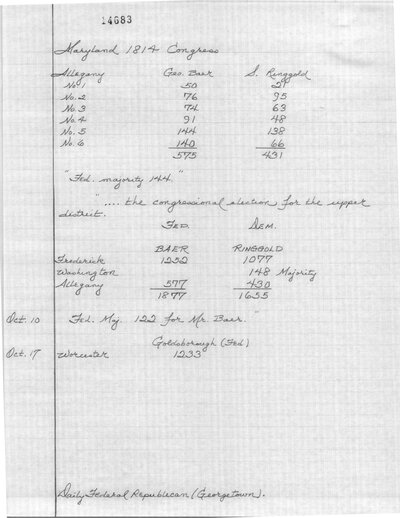 14683
Maryland 1814 Congress
Allegany Geo. Baer S. Ringgold
No. 1 50 21
No. 2 76 95
No. 3 74 63
No. 4 91 48
No. 5 144 138
No. 6 140 66
575 431
"Fed. majority 144."
".... the congressional election for the upper
district.
FED. DEM.
BAER RINGGOLD
Frederick 1252 1077
Washington 148 Majority
Allegany 577 430
1877 1655
Oct. 10 Fed. Maj. 122 for Mr. Baer."
Goldsborough (Fed)
Oct. 17 Worcester 1233
Daily Federal Republican (Georgetown).